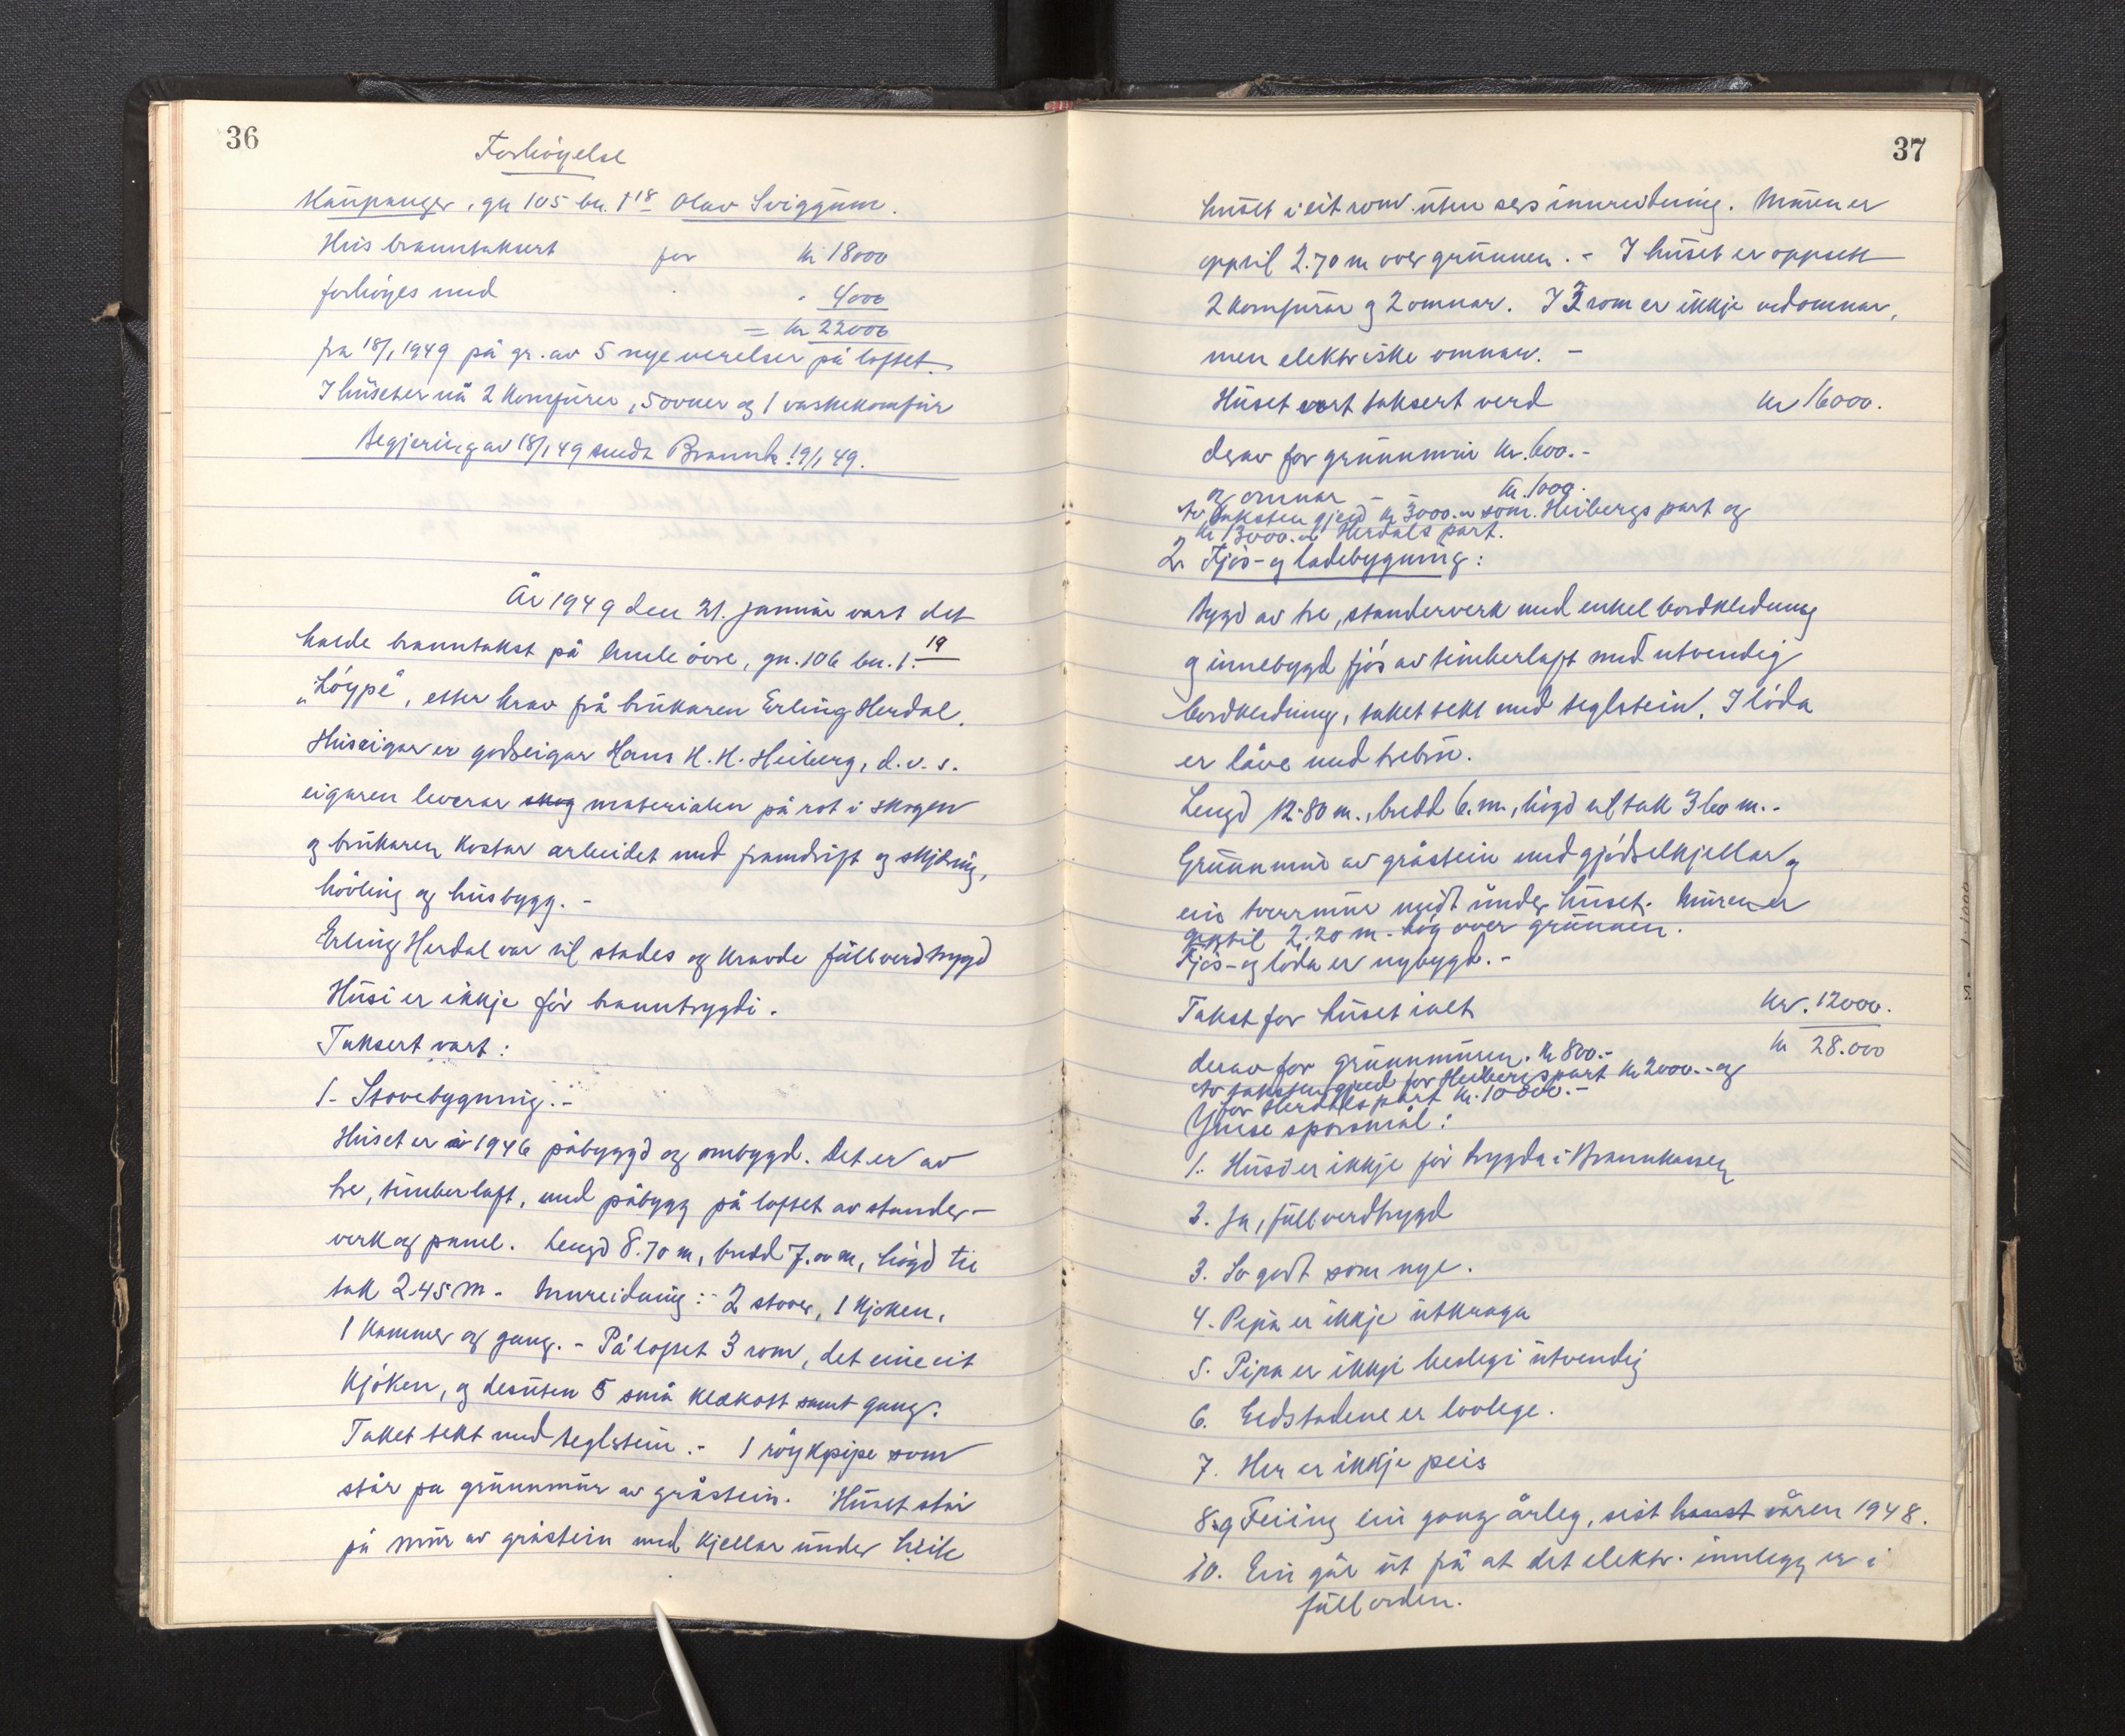 36
Forhöyelse
Kaupanger, gn 105 bn. 1 18 Olav Sviggum.
Hus branntaksert for kr 18000
forhöyes med " 4000
= kr 22000
fra 18/1 1949 på gr. av 5 nye verelser på loftet.
I huset er nå 2 komfürer, 5 ovner og 1 vaskekomfür
Begjering av 18/1 49 sendt Brannk. 19/1 49.
År 1949 den 21. januar vart det
halde branntakst på Amle övre, gn. 106 bn. 1. 19
"Löype", etter krav frå brukaren Erling Herdal.
Huseigar er godseigar Hans H. H. Heiberg, d.v.s.
eigaren leverar skog materialen på rot i skogen
og brukaren kostar arbeidet med framdrift og skjæring,
hövling og husbygg. -
Erling Herdal var til stades og kravde fullverdtrygd
Husi er ikkje för branntrygdi.
Taksert vart:
1. Stovebygning: -
Huset er i 1946 påbyggd og ombygd. Det er av
tre, timberlaft, med påbygg på loftet av stander-
verk og panel. Lengd 8.70 m, bredd 7.00 m, högd til
tak 2.45 m. Innreidning: 2 stover, 1 kjöken,
1 kammer og gang. - På loftet 3 rom, det eine eit
kjöken, og desuten 5 små kleskott samt gang.
Taket tekt med teglstein. - 1 röykpipe som
står på grunnmur av gråstein. Huset står
på mur av gråstein med kjellar under heile
37
huset i eit rom uten sers innreidning. Muren er
opptil 2.70 m over grunnen. - I huset er oppsett
2 komfurar og 2 omnar. I 3 rom er ikkje vedomnar,
men elektriske omnar. -
Huset vart taksert verd kr 16000.
derav for grunnmur kr. 600. -
og omnar - kr. 1000.
Av taksten gjeld kr 3000.- som Heibergs part og
kr 13000.- Herdals part.
2. Fjös- og ladebygning:
Bygd av tre, standerverk med enkel bordkledning
og innebygd fjös av timberlaft med utvendig
bordkledning, taket tekt med teglstein. I löda
er låve med trebru.
Lengd 12.80 m., bredd 6. m., högd til tak 3.60 m. -
Grunnmur av gråstein med gjödselkjellar og
ein tverrmur midt under huset. Muren er
opptil 2.20 m. høg over grunnen.
Fjös- og löda er nybygd. -
Takst for huset ialt kr. 12000.
kr 28.000
derav for grunnmuren. kr 800. -
Av taksten gjeld for Heibergs part kr 2000. - og
for Herdals part kr. 10000. -
Ymse spörsmål:
1. Husi er ikkje för trygda i Brannkassen
2. Ja, fullverdtrygd
3. So godt som nye.
4. Pipa er ikkje utkraga
5. Pipa er ikkje beslegi utvendig
6. Eldstadene er lovlege.
7. Her er ikkje peis
8.9 Feiing ein gong årleg, sist haust våren 1948.
10. Ein går ut frå at det elektr. innlegg er i
full orden.